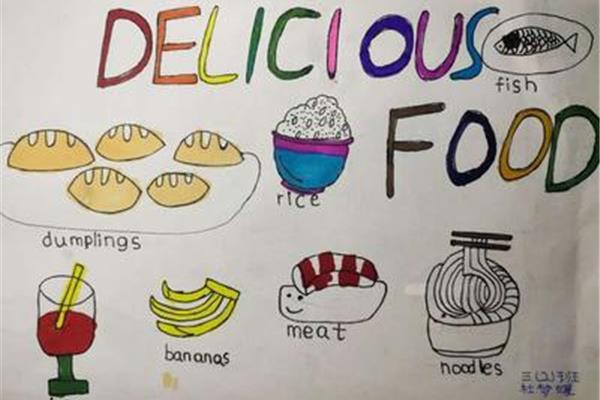 DELICIOUS
fish
FOOD
rice
dumplings
meat
bananas
noodles
三(2)班